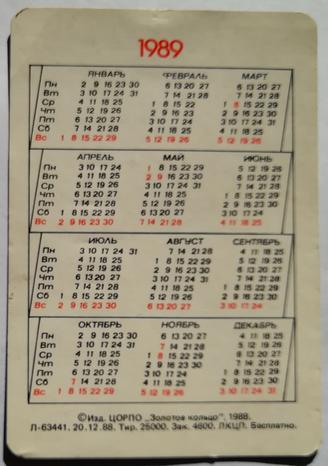 1989
ЯНВАРЬ ФЕВРАЛЬ МАРТ
Пн 2 9 16 23 30 6 13 20 27 6 13 20 27
Вт 3 10 17 24 31 7 14 21 28 7 14 21 28
Ср 4 11 18 25 1 8 15 22 1 8 15 22 29
Чт 5 12 19 26 2 9 16 23 2 9 16 23 30
Пт 6 13 20 27 3 10 17 24 3 10 17 24 31
Сб 7 14 21 28 4 11 18 25 4 11 18 25
Вс 1 8 15 22 29 5 12 19 26 5 12 19 26
АПРЕЛЬ МАЙ ИЮНЬ
Пн 3 10 17 24 1 8 15 22 29 5 12 19 26
Вт 4 11 18 25 2 9 16 23 30 6 13 20 27
Ср 5 12 19 26 3 10 17 24 31 7 14 21 28
Чт 6 13 20 27 4 11 18 25 1 8 15 22 29
Пт 7 14 21 28 5 12 19 26 2 9 16 23 30
Сб 1 8 15 22 29 6 13 20 27 3 10 17 24
Вс 2 9 16 23 30 7 14 21 28 4 11 18 25
ИЮЛЬ АВГУСТ СЕНТЯБРЬ
Пн 3 10 17 24 31 7 14 21 28 4 11 18 25
Вт 4 11 18 25 1 8 15 22 29 5 12 19 26
Ср 5 12 19 26 2 9 16 23 30 6 13 20 27
Чт 6 13 20 27 3 10 17 24 31 7 14 21 28
Пт 7 14 21 28 4 11 18 25 1 8 15 22 29
Сб 1 8 15 22 29 5 12 19 26 2 9 16 23 30
Вс 2 9 16 23 30 6 13 20 27 3 10 17 24
ОКТЯБРЬ НОЯБРЬ ДЕКАБРЬ
Пн 2 9 16 23 30 6 13 20 27 4 11 18 25
Вт 3 10 17 24 31 7 14 21 28 5 12 19 26
Ср 4 11 18 25 1 8 15 22 29 6 13 20 27
Чт 5 12 19 26 2 9 16 23 30 7 14 21 28
Пт 6 13 20 27 3 10 17 24 1 8 15 22 29
Сб 7 14 21 28 4 11 18 25 2 9 16 23 30
Вс 1 8 15 22 29 5 12 19 26 3 10 17 24 31
©Изд. ЦОРПО „Золотое кольцо", 1988.
Л-63441. 20.12.88. Тир. 25000. Зак. 4600. ЛКЦП. Бесплатно.